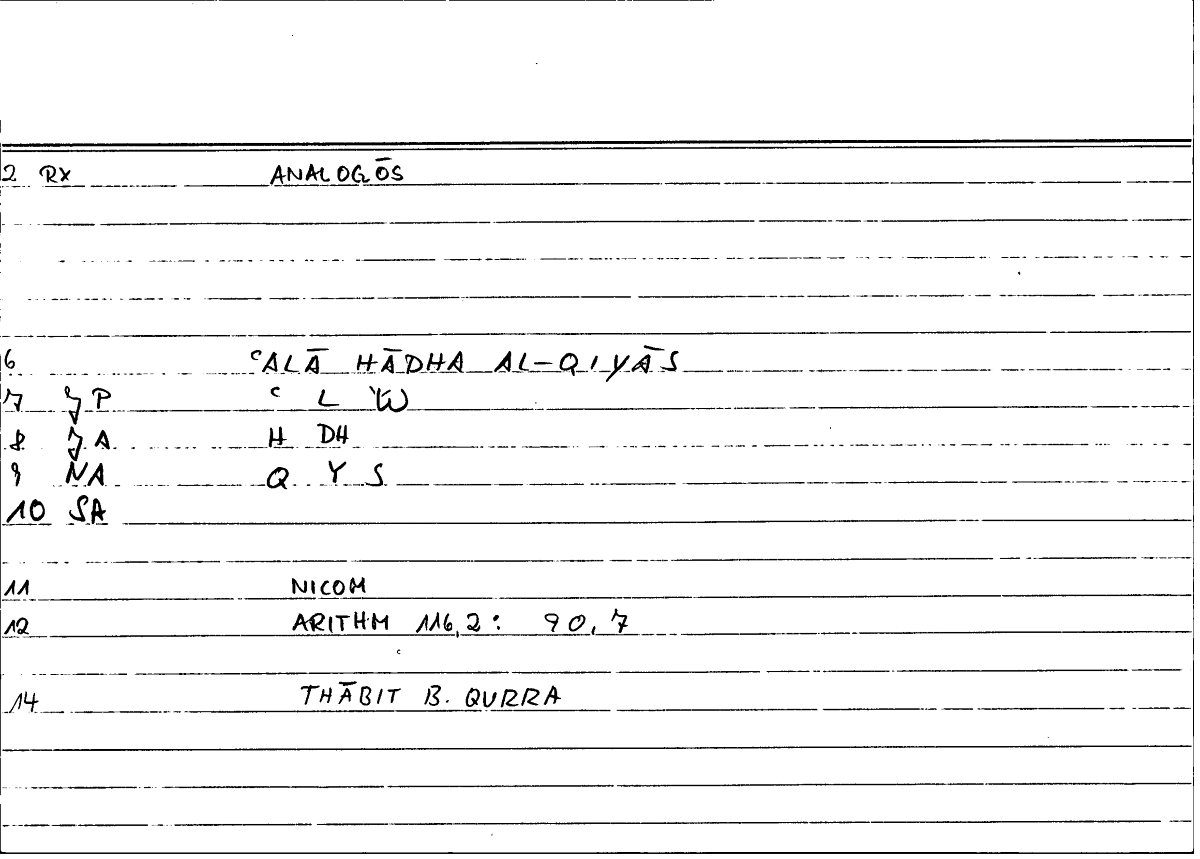 2 RX ANALOGŌS
6 ʿALĀ HĀDHA AL-QIYĀS
7 ʿ L
8 H DH
9 NA Q Y S
10 SA
11 NICOM
12 ARITHM 116,2: 90,7
14 THĀBIT B. QURRA